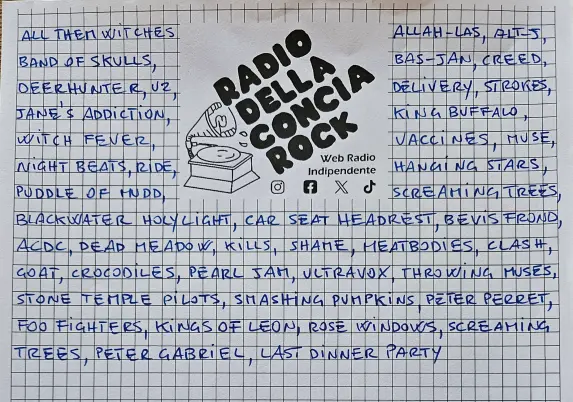 ALL THEM WITCHES
BAND OF SKULLS,
DEERHUNTER, U2,
JANE'S ADDICTION,
WITCH FEVER,
NIGHT BEATS, RIDE,
PUDDLE OF MUDD,
RADIO
DELLA
CONCIA
ROCK
Web Radio
Indipendente
ALLAH-LAS, ALT-J,
BAS-JAN, CREED,
DELIVERY, STROKES,
KING BUFFALO,
VACCINES, MUSE,
HANGING STARS,
SCREAMING TREES,
BLACKWATER HOLYLIGHT, CAR SEAT HEADREST, BEVIS FROND,
ACDC, DEAD MEADOW, KILLS, SHAME, MEATBODIES, CLASH,
GOAT, CROCODILES, PEARL JAM, ULTRAVOX, THROWING MUSES,
STONE TEMPLE PILOTS, SMASHING PUMPKINS, PETER PERRET,
FOO FIGHTERS, KINGS OF LEON, ROSE WINDOWS, SCREAMING
TREES, PETER GABRIEL, LAST DINNER PARTY